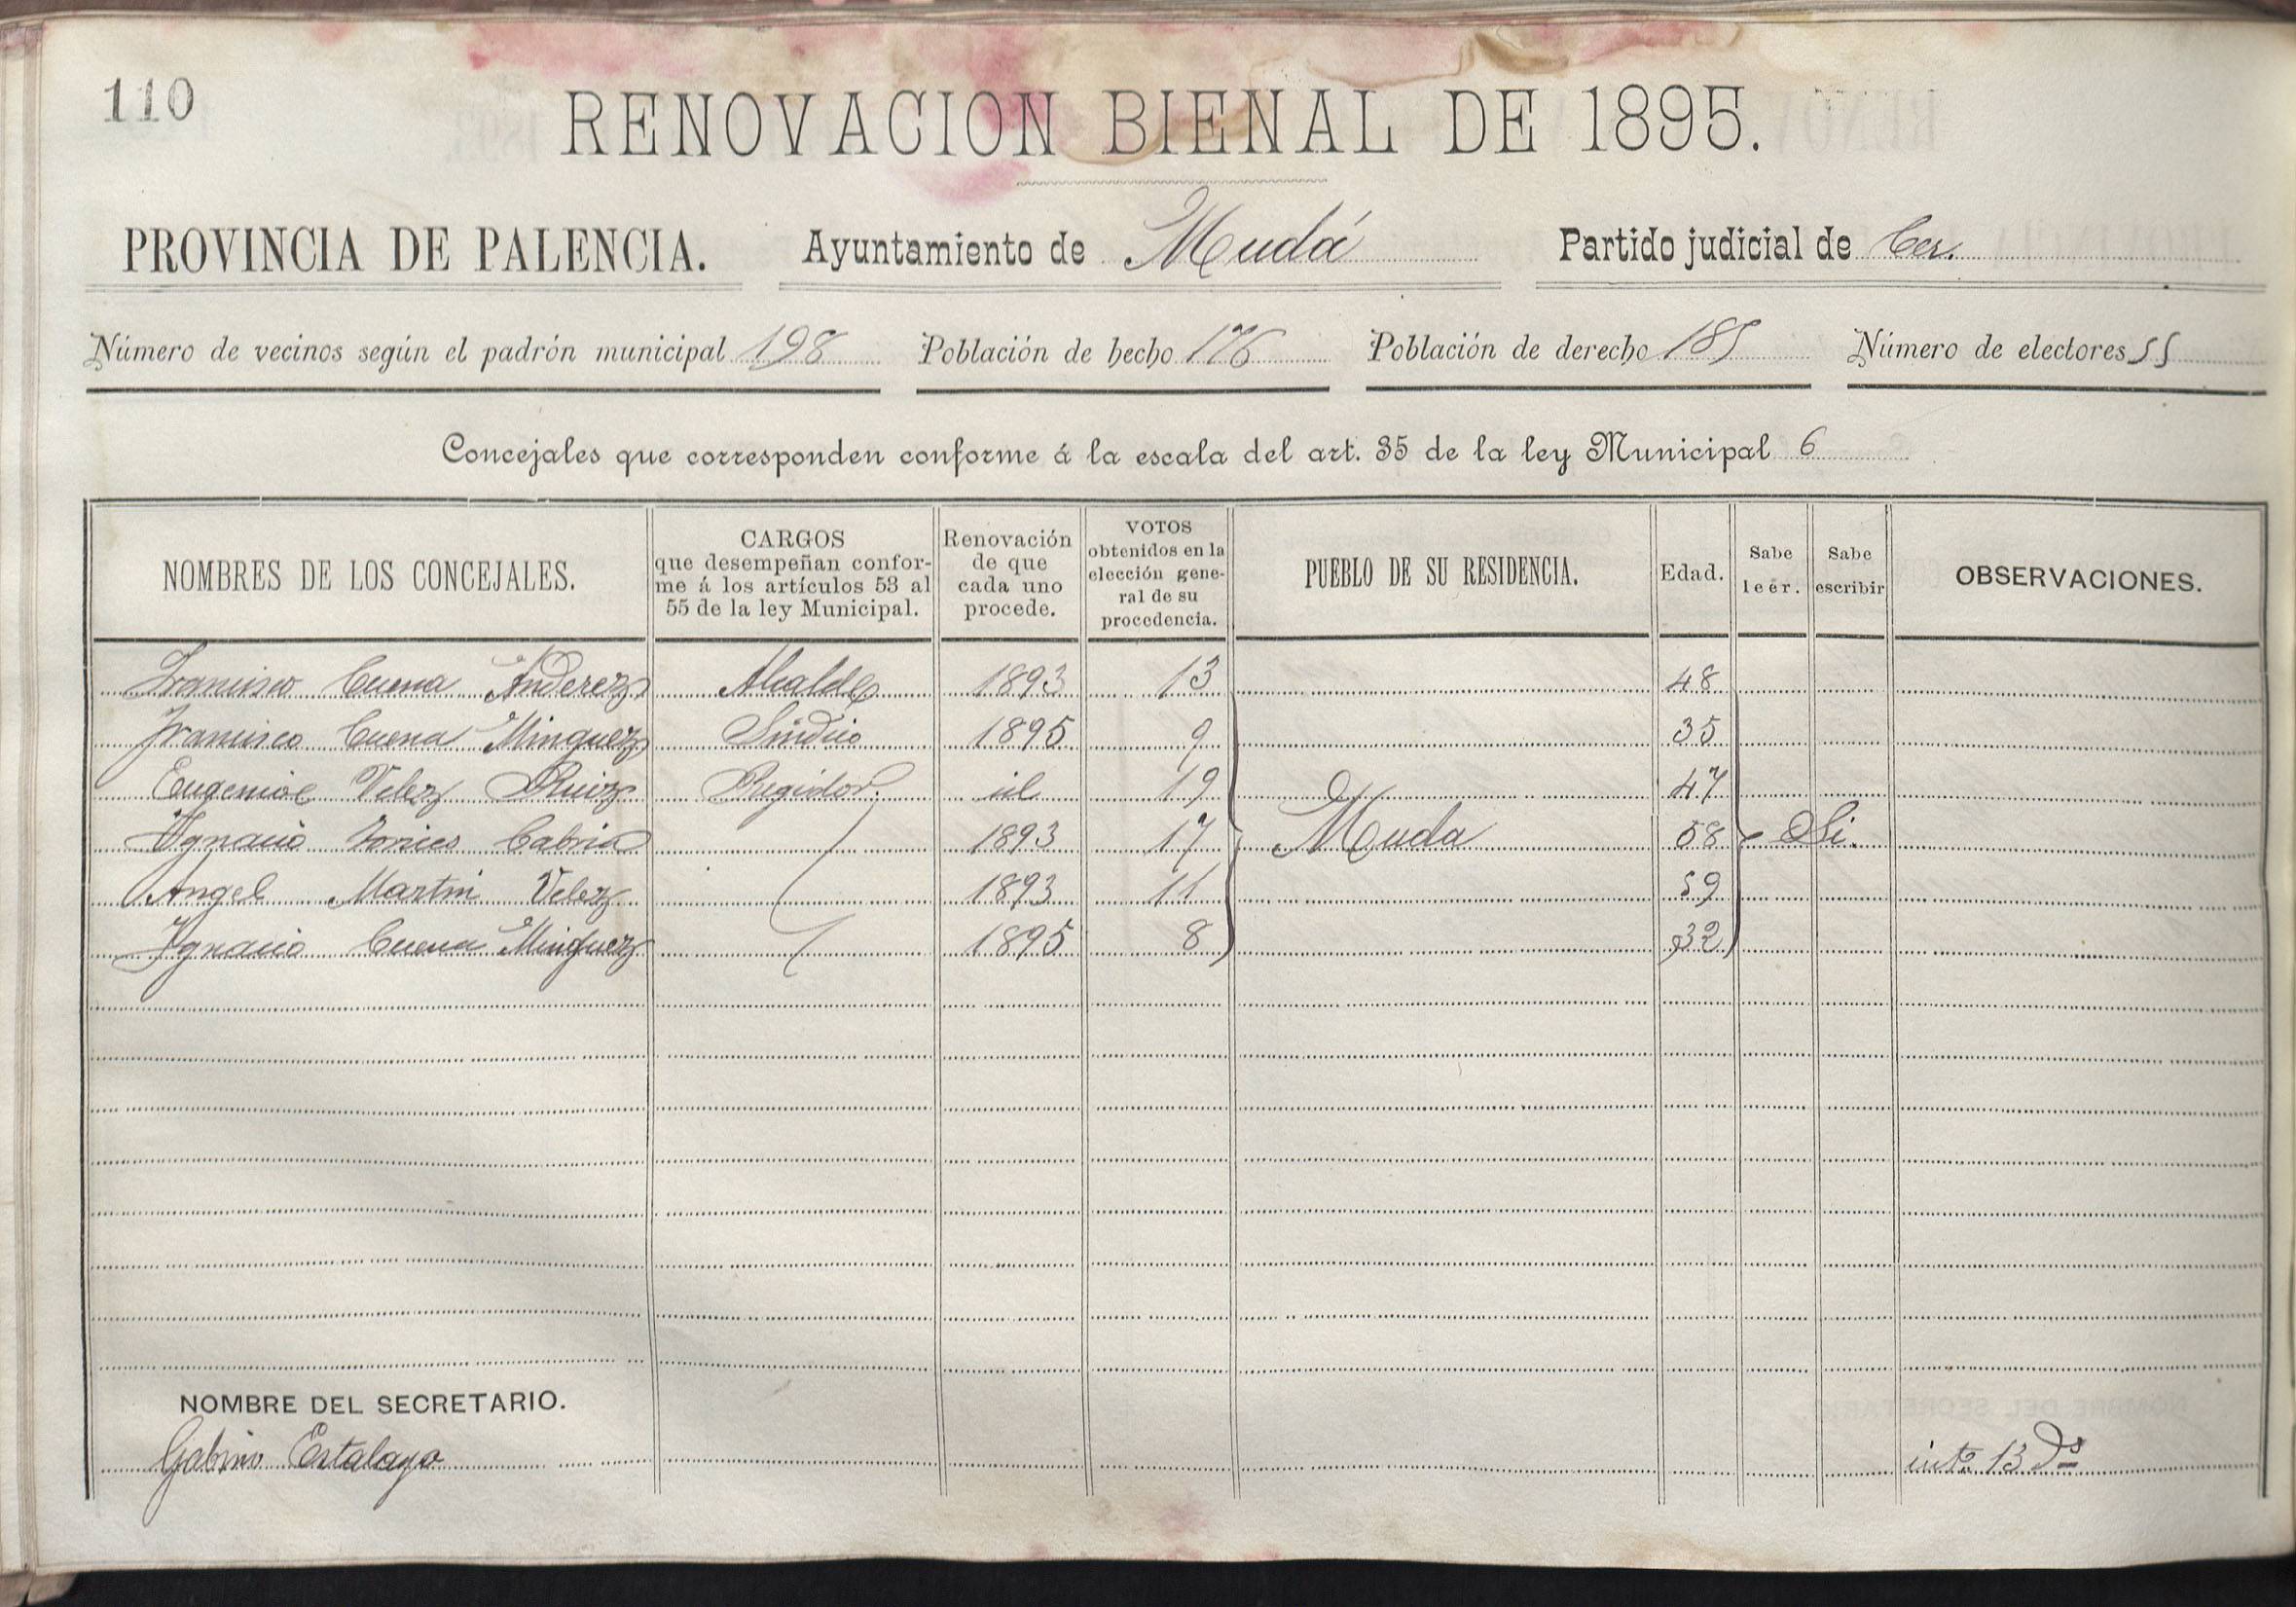 110
RENOVACION BIENAL DE 1895.
PROVINCIA DE PALENCIA. Ayuntamiento de Mudá Partido judicial de Cer.
Número de vecinos según el padrón municipal 198 Población de hecho 176 Población de derecho 185 Número de electores 55
Concejales que corresponden conforme á la escala del art. 35 de la ley Municipal 6
NOMBRES DE LOS CONCEJALES. CARGOS que desempeñan confor-me á los artículos 53 al 55 de la ley Municipal. Renovación de que cada uno procede. VOTOS obtenidos en la elección gene-ral de su procedencia. PUEBLO DE SU RESIDENCIA. Edad. Sabe leér. Sabe escribir OBSERVACIONES.
Francisco Cuena Anderez Alcalde 1893 13 48
Francisco Cuena Minguez Síndico 1895 9 35
Eugenio Velez Ruiz Regidor. id 19 47
Ygnacio Cabria 1893 17 Muda 58 Si.
Angel Martin Velez 1893 11 59
Ygnacio Cuena Minguez 1895 8 32
NOMBRE DEL SECRETARIO.
Gabino Estalayo int. 13 Ds